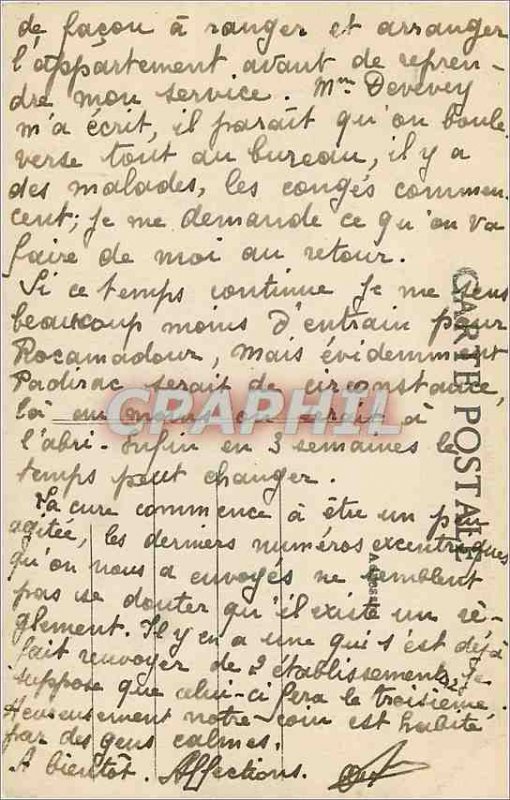 de façon à ranger et arranger
l'appartement avant de repren-
dre mon service. Mme Devevey
m'a écrit, il paraît qu'on boule
verse tout au bureau, il y a
des malades, les congés commen-
cent; je me demande ce qu'on va
faire de moi au retour.
Si ce temps continue je me sens
beaucoup moins d'entrain pour
Rocamadour, mais évidemment
Padirac serait de circonstance,
là au moins on serait à
l'abri. Enfin en 3 semaines le
temps peut changer.
La cure commence à être un peu
agitée, les derniers numéros excentriques
qu'on nous a envoyés ne semblent
pas se douter qu'il existe un rè-
glement. Il y en a une qui s'est déjà
fait renvoyer de 2 établissements, je
suppose que celui-ci fera le troisième.
Heureusement notre coin est habité
par des gens calmes.
A bientôt. Affections.
CARTE POSTALE
CRAPHIL